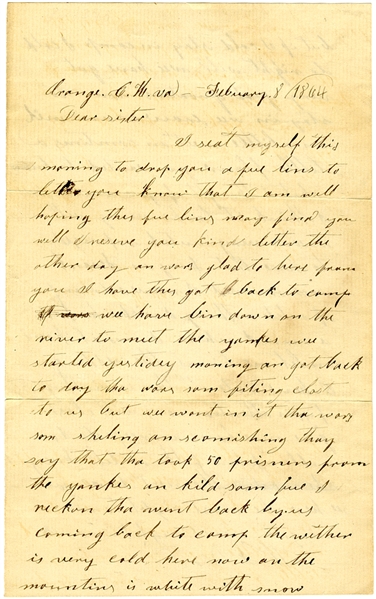 Orange. C. H. va - February. 8 / 1864
Dear sister
I seat myself this
moning to drop you a fue lins to
let you know that I am well
hoping this fue lins may find you
well I reseve you kind letter the
other day an was glad to here from
you I have this got back to camp
wee have bin down on the
river to meet the yankes wee
started yestidey moning an got back
to day tha wars som fiting clost
to us but wee want in it tha wars
som sheling an scomishing thay
say that tha took 50 prisners from
the yankes an kild som fue I
reckon tha went back by us
coming back to camp the wither
is very cold here now an the
mountins is white with snow